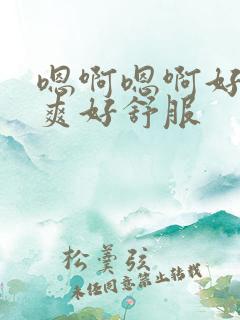 嗯啊嗯啊好
爽好舒服
松羹弦
未经同意禁止转载